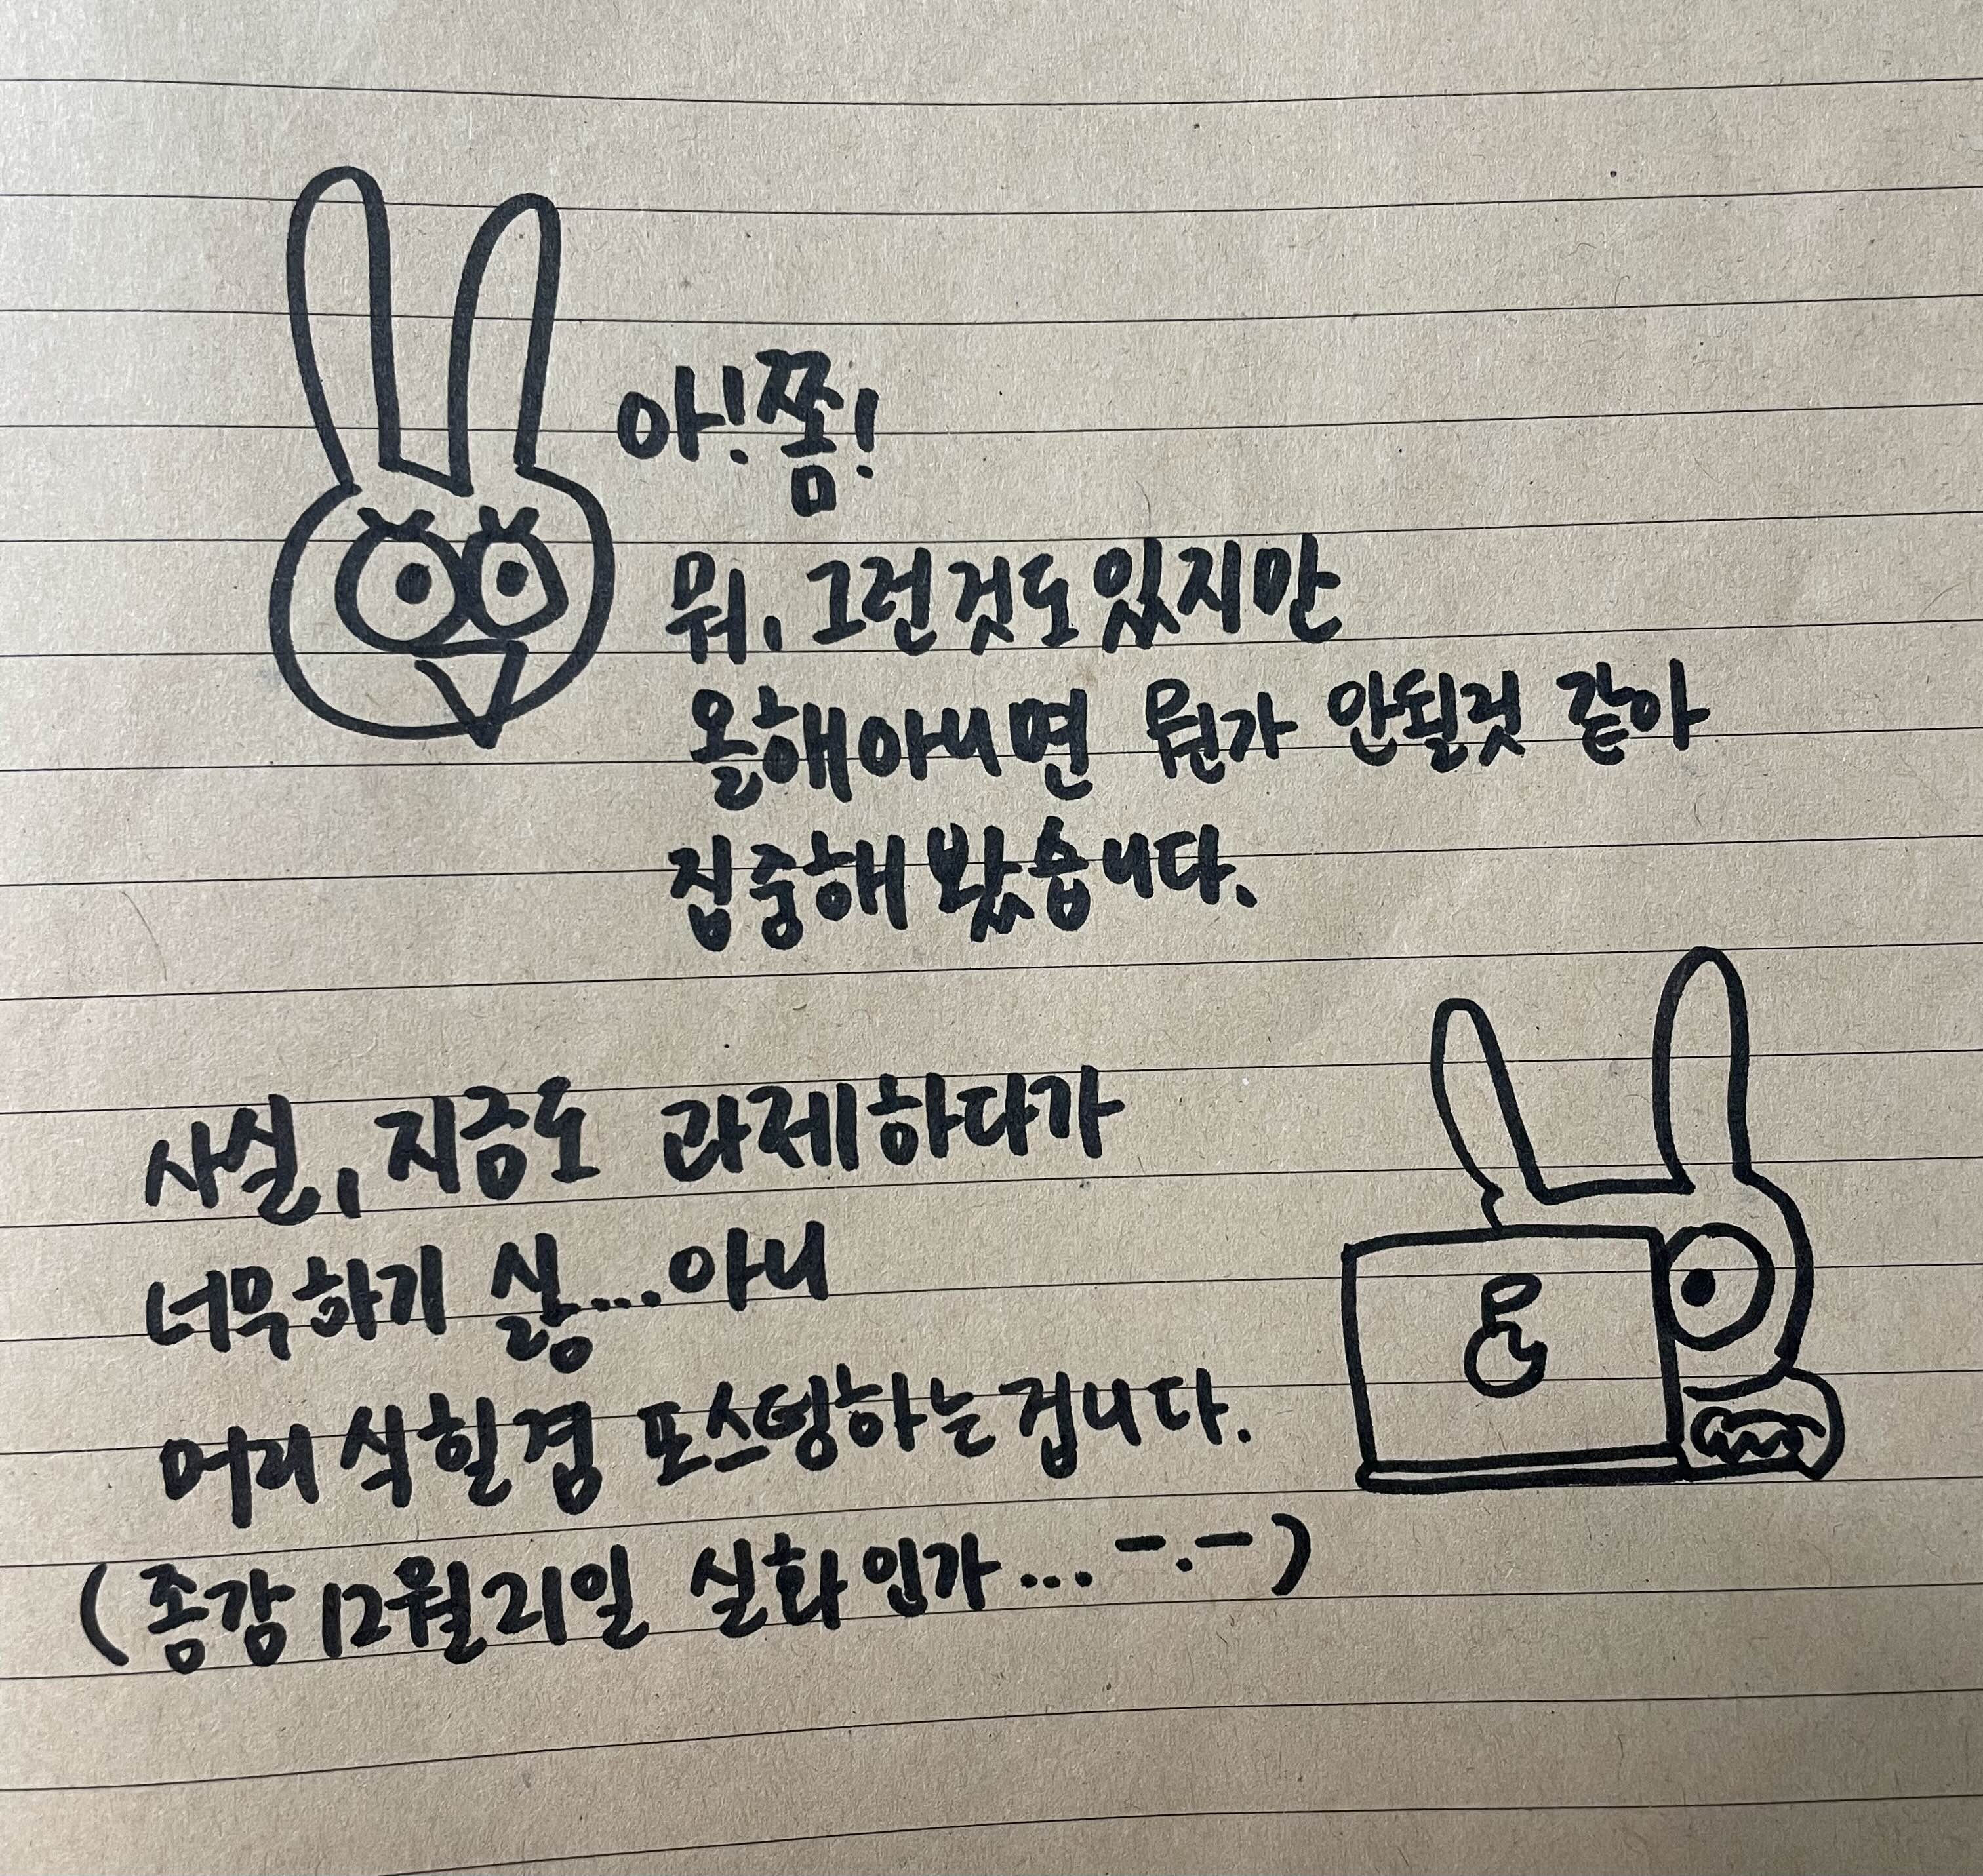 아! 쫌!
뭐, 그런것도 있지만
올해아니면 뭔가 안될것 같아
집중해 봤습니다.
사실, 지금도 과제하다가
너무하기 싫...아니
머리 식힐겸 포스팅하는겁니다.
(종강 12월 21일 실화인가... -.-)